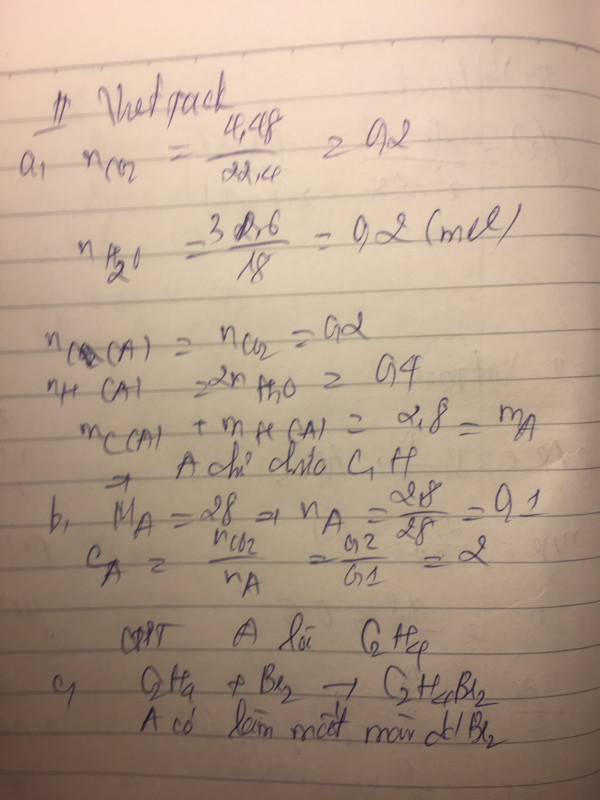 II
a, nCO2 = 4,48 / 22,4 = 0,2
nH2O = 3,6 / 18 = 0,2 (mol)
nC(A) = nCO2 = 0,2
nH (A) = 2nH2O = 0,4
mC(A) + mH(A) = 2,8 = mA
⇒ A chỉ chứa C, H
b, MA = 28 ⇒ nA = 2,8 / 28 = 0,1
CA = nCO2 / nA = 0,2 / 0,1 = 2
CTPT A là C2H4
c, C2H4 + Br2 → C2H4Br2
A có làm mất màu dd Br2